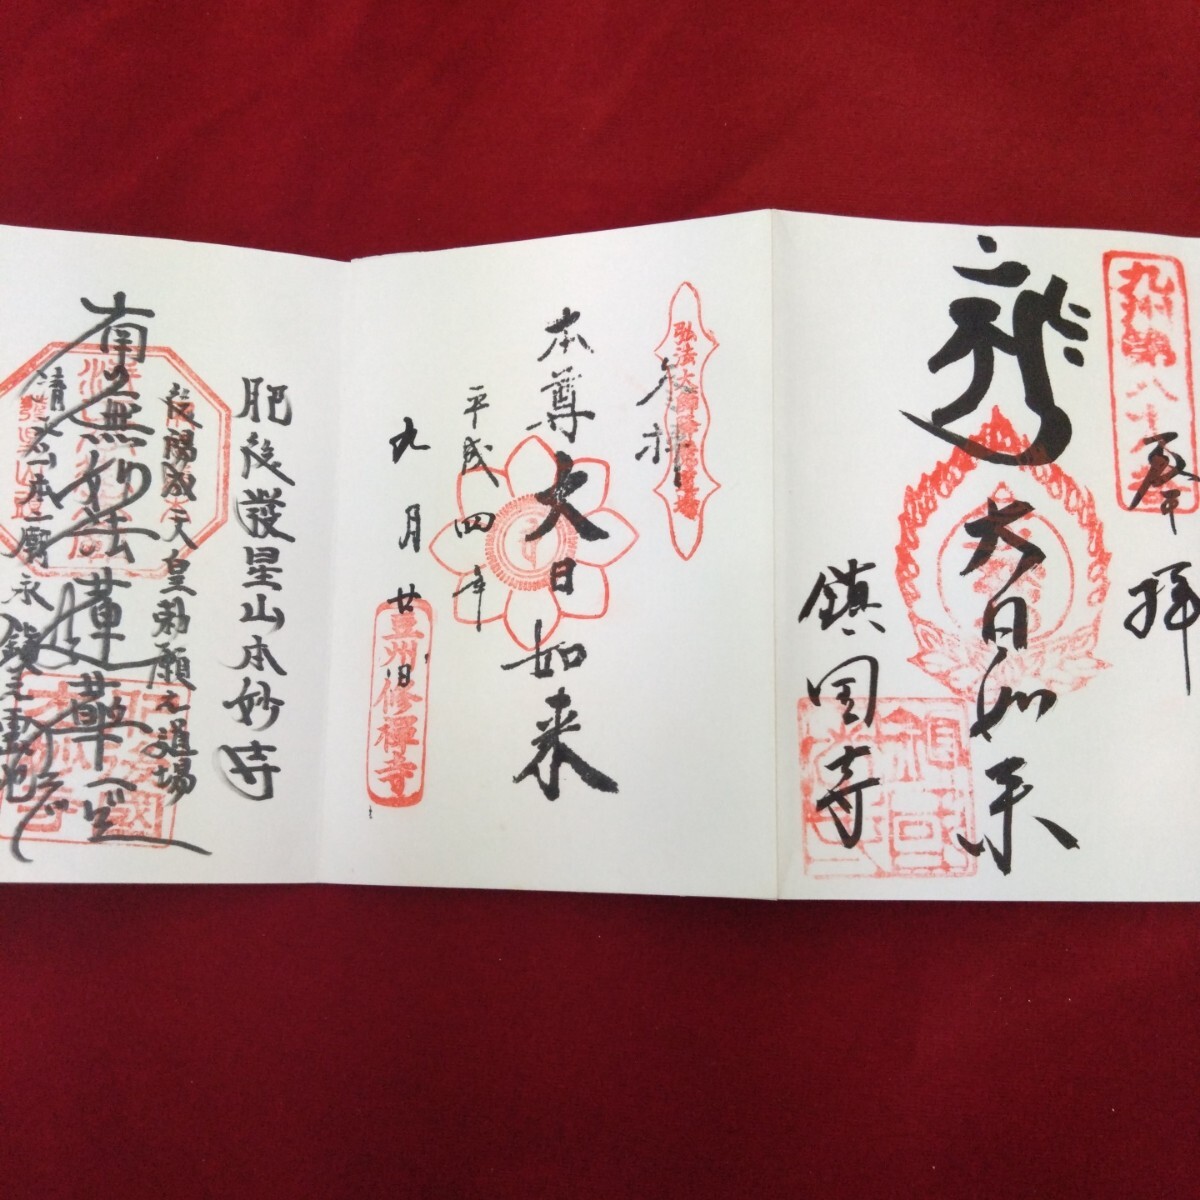 九州第八十八番
奉拝
大日如来
鎮国寺
弘法大師
奉拝
本尊大日如来
平成四年
九月廿日
豆州修禅寺
肥後發星山本妙寺
後陽成天皇勅願之道場
南無妙法蓮華经
清正公本廟永鎮之霊地